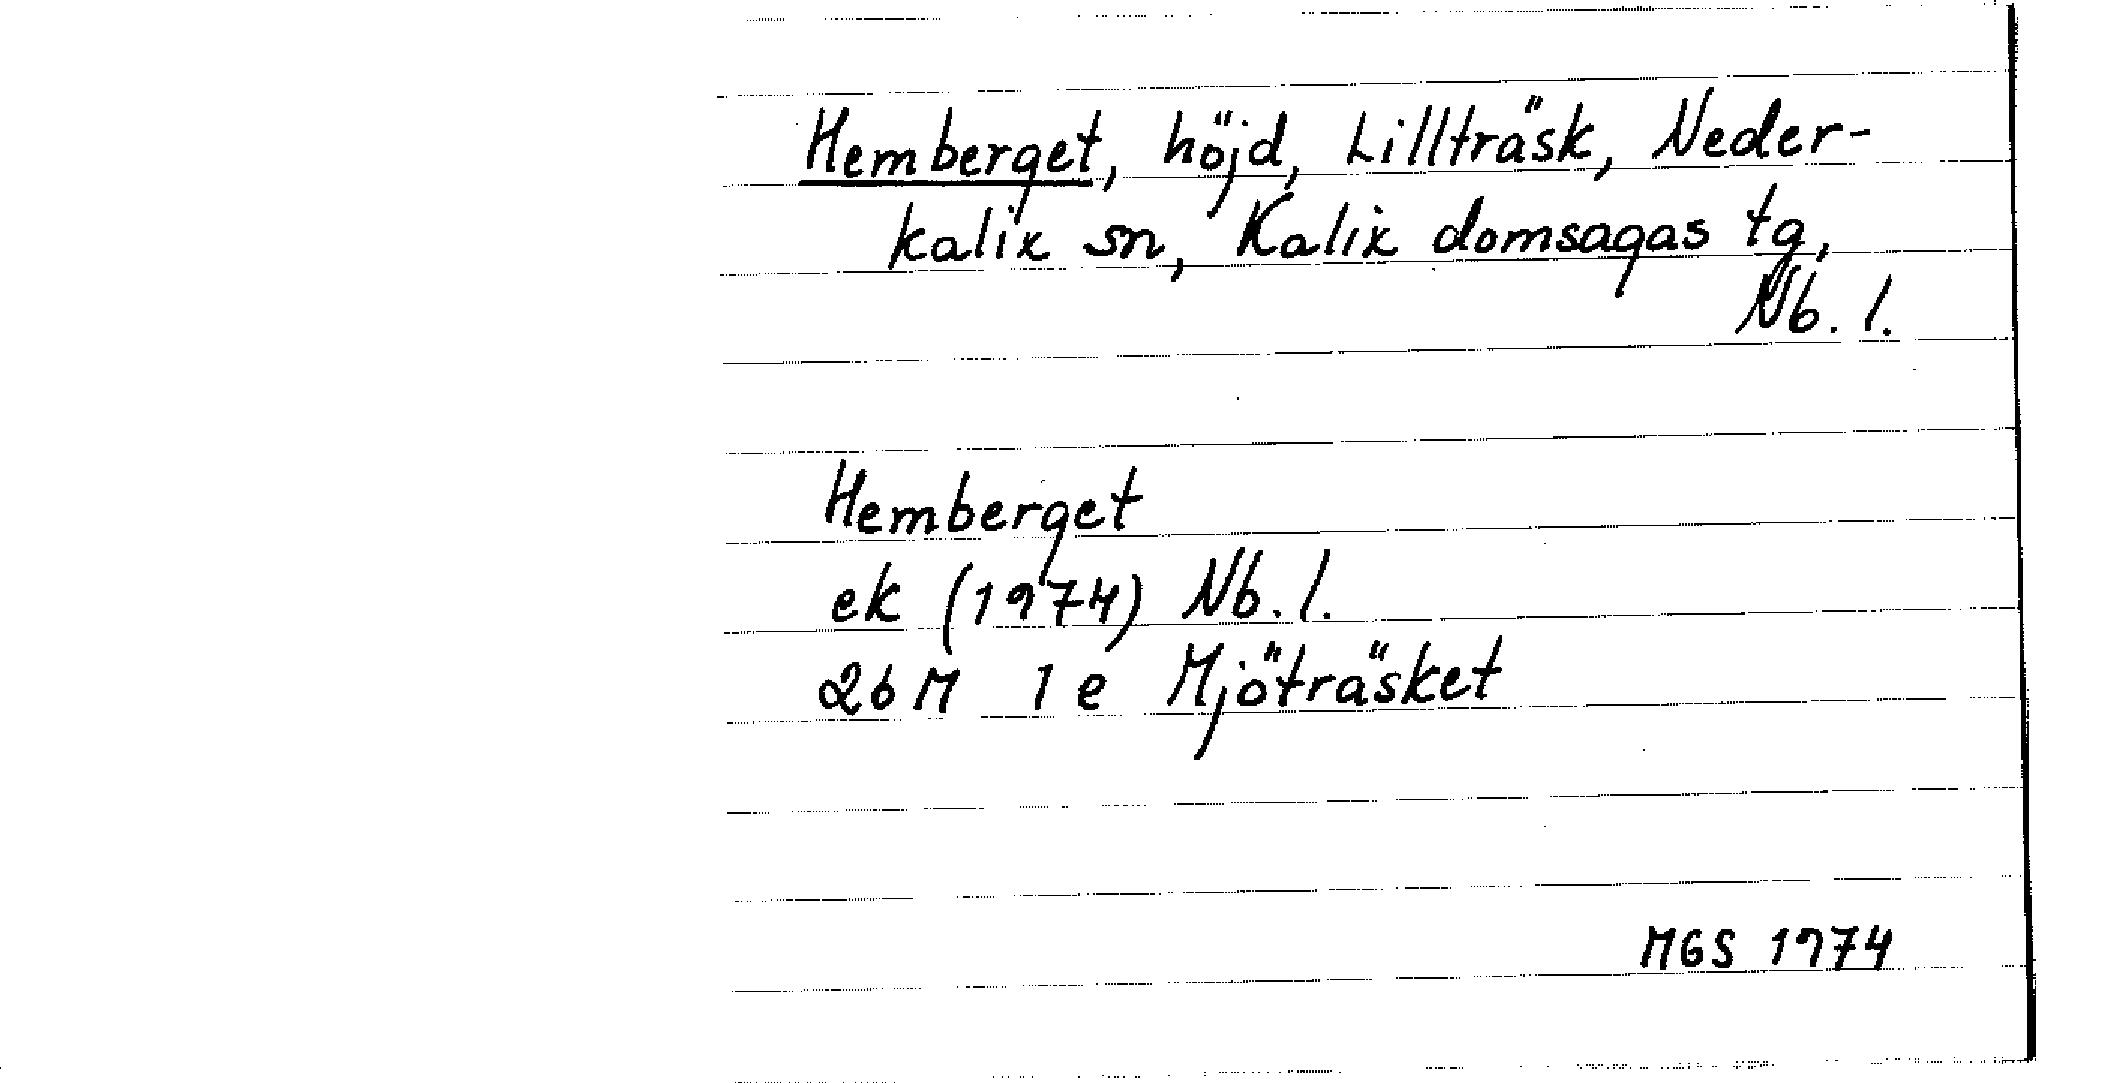 Hemberget, höjd, Lillträsk, Neder-
kalix sn, Kalix domsagas tg,
Nb. l.
Hemberget
ek (1974) Nb. l.
26 M 1 e Mjöträsket
MGS 1974